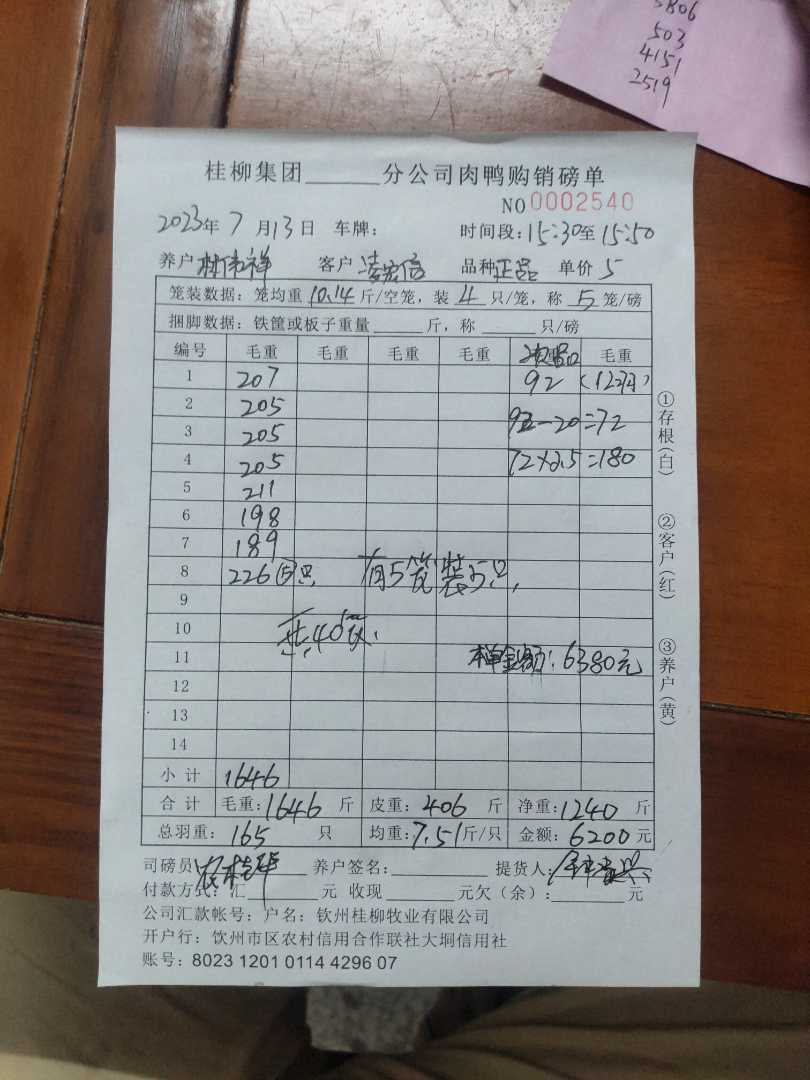 5806
503
4151
2519
桂柳集团______分公司肉鸭购销磅单
NO 0002540
2023年 7 月 13 日 车牌: 时间段: 15:30至 15:50
养户 林伟祥 客户 凌宏信 品种 正品 单价 5
笼装数据: 笼均重 10.14 斤/空笼, 装 4 只/笼, 称 5 笼/磅
捆脚数据: 铁筐或板子重量______斤, 称______只/磅
编号 毛重 毛重 毛重 毛重 毛重
1 207 92 (12只)
2 205 92-20=72
3 205
4 205 72×2.5=180
5 211
6 198
7 189
8 226 ⑤只, 有5笼装5只,
9
10 共40笼.
11 本单金额: 6380元
12
13
14
小计 1646
合计 毛重: 1646 斤 皮重: 406 斤 净重: 1240 斤
总羽重: 165 只 均重: 7.51 斤/只 金额: 6200 元
①存根(白) ②客户(红) ③养户(黄)
司磅员 养户签名: 提货人:
付款方式: 汇______元 收现______元欠(余): ______元
公司汇款帐号: 户名: 钦州桂柳牧业有限公司
开户行: 钦州市区农村信用合作联社大垌信用社
账号: 8023 1201 0114 4296 07